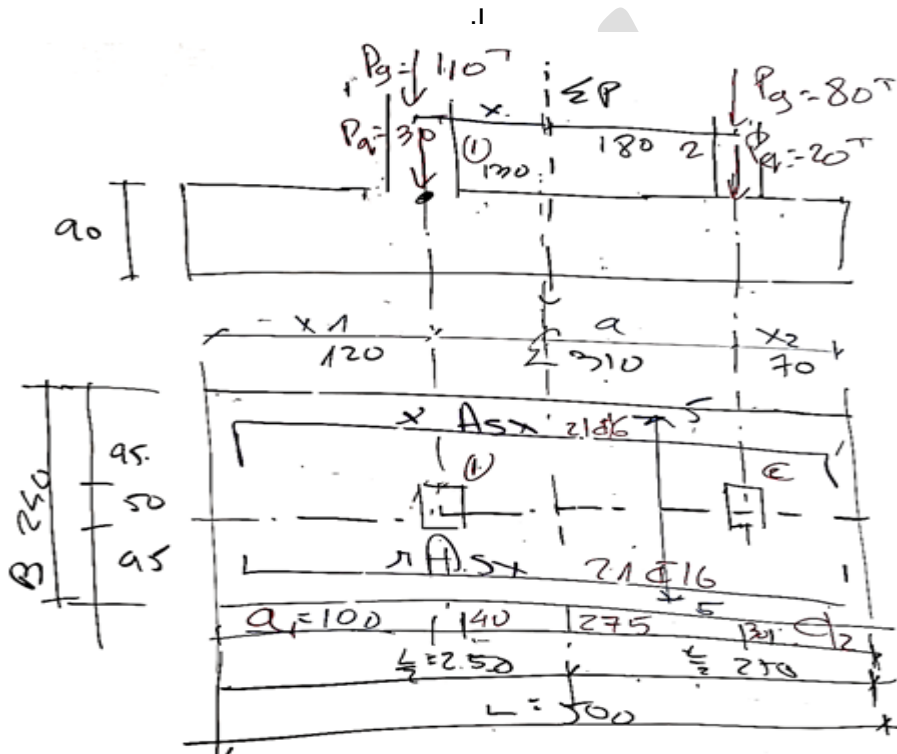 I.
Pg = 110T
ΣP
Pg = 80T
x
Pq = 30
①
130
180
2
q = 20T
90
x1
120
Σ
a
310
x2
70
x Asx 21
5
95
50
95
B 240
①
②
Asx 21 ⌀16
5
a1 = 100
40
275
30
2
L/2 = 2.50
L/2 250
L = 500